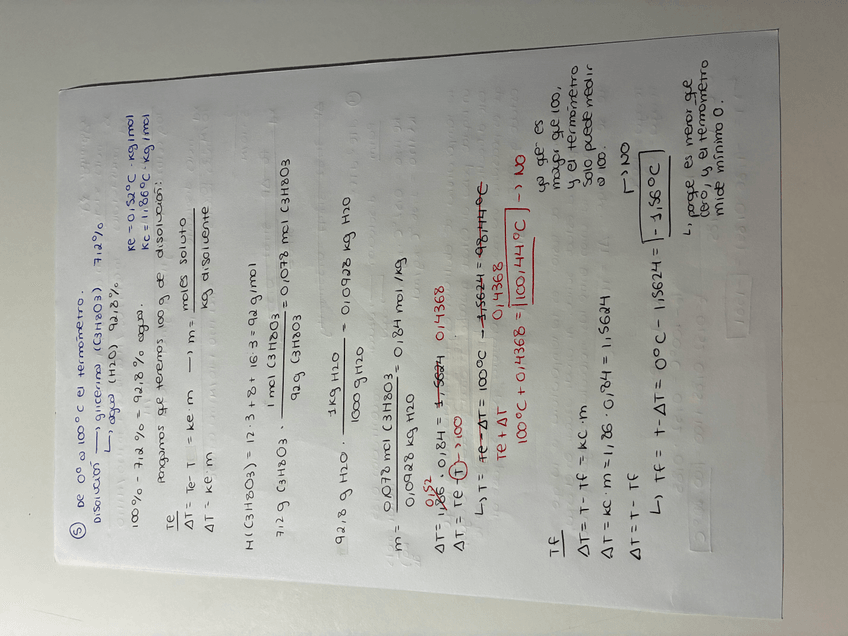 ⑤ De 0º a 100ºC el termómetro.
Disolución → glicerina (C3H8O3) 7,2%
↳ agua (H2O) 92,8%
100% - 7,2% = 92,8% agua.
Ke = 0,52ºC · kg/mol
Kc = 1,86ºC · kg/mol
Pongamos que tenemos 100 g de disolución:
Te
ΔT = Te - T = Ke · m → m = moles soluto / kg disolvente
ΔT = Ke · m
M(C3H8O3) = 12·3 + 8 + 16·3 = 92 g/mol
7,2 g C3H8O3 · 1 mol C3H8O3 / 92 g C3H8O3 = 0,078 mol C3H8O3
92,8 g H2O · 1 kg H2O / 1000 g H2O = 0,0928 kg H2O
m = 0,078 mol C3H8O3 / 0,0928 kg H2O = 0,84 mol/kg
0,52
ΔT = 1,86 · 0,84 = 1,5624 0,4368
ΔT = Te - T → 100
↳ T = Te - ΔT = 100ºC - 1,5624 = 98,44ºC
Te + ΔT 0,4368
100ºC + 0,4368 = 100,44ºC → NO
ya que es
mayor que 100,
y el termómetro
solo puede medir
a 100.
Tf
ΔT = T - Tf = Kc · m
ΔT = Kc · m = 1,86 · 0,84 = 1,5624
ΔT = T - Tf
↳ Tf = T - ΔT = 0ºC - 1,5624 = -1,56ºC → NO
↳ porque es menor que
cero, y el termómetro
mide mínimo 0.